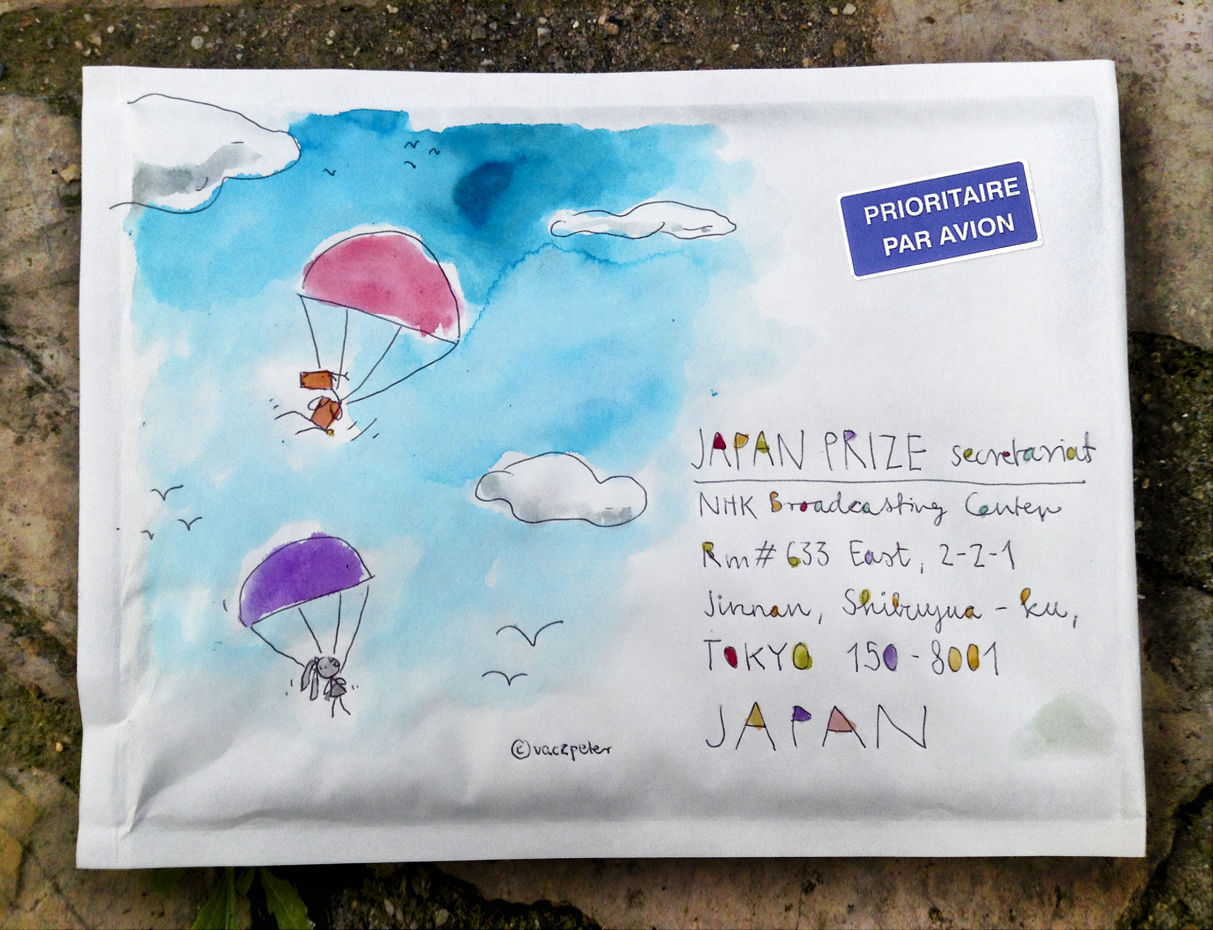 PRIORITAIRE
PAR AVION
JAPAN PRIZE secretariat
NHK Broadcasting Center
Rm# 633 East, 2-2-1
Jinnan, Shibuyua - ku,
TOKYO 150-8001
JAPAN
©vaczpeter